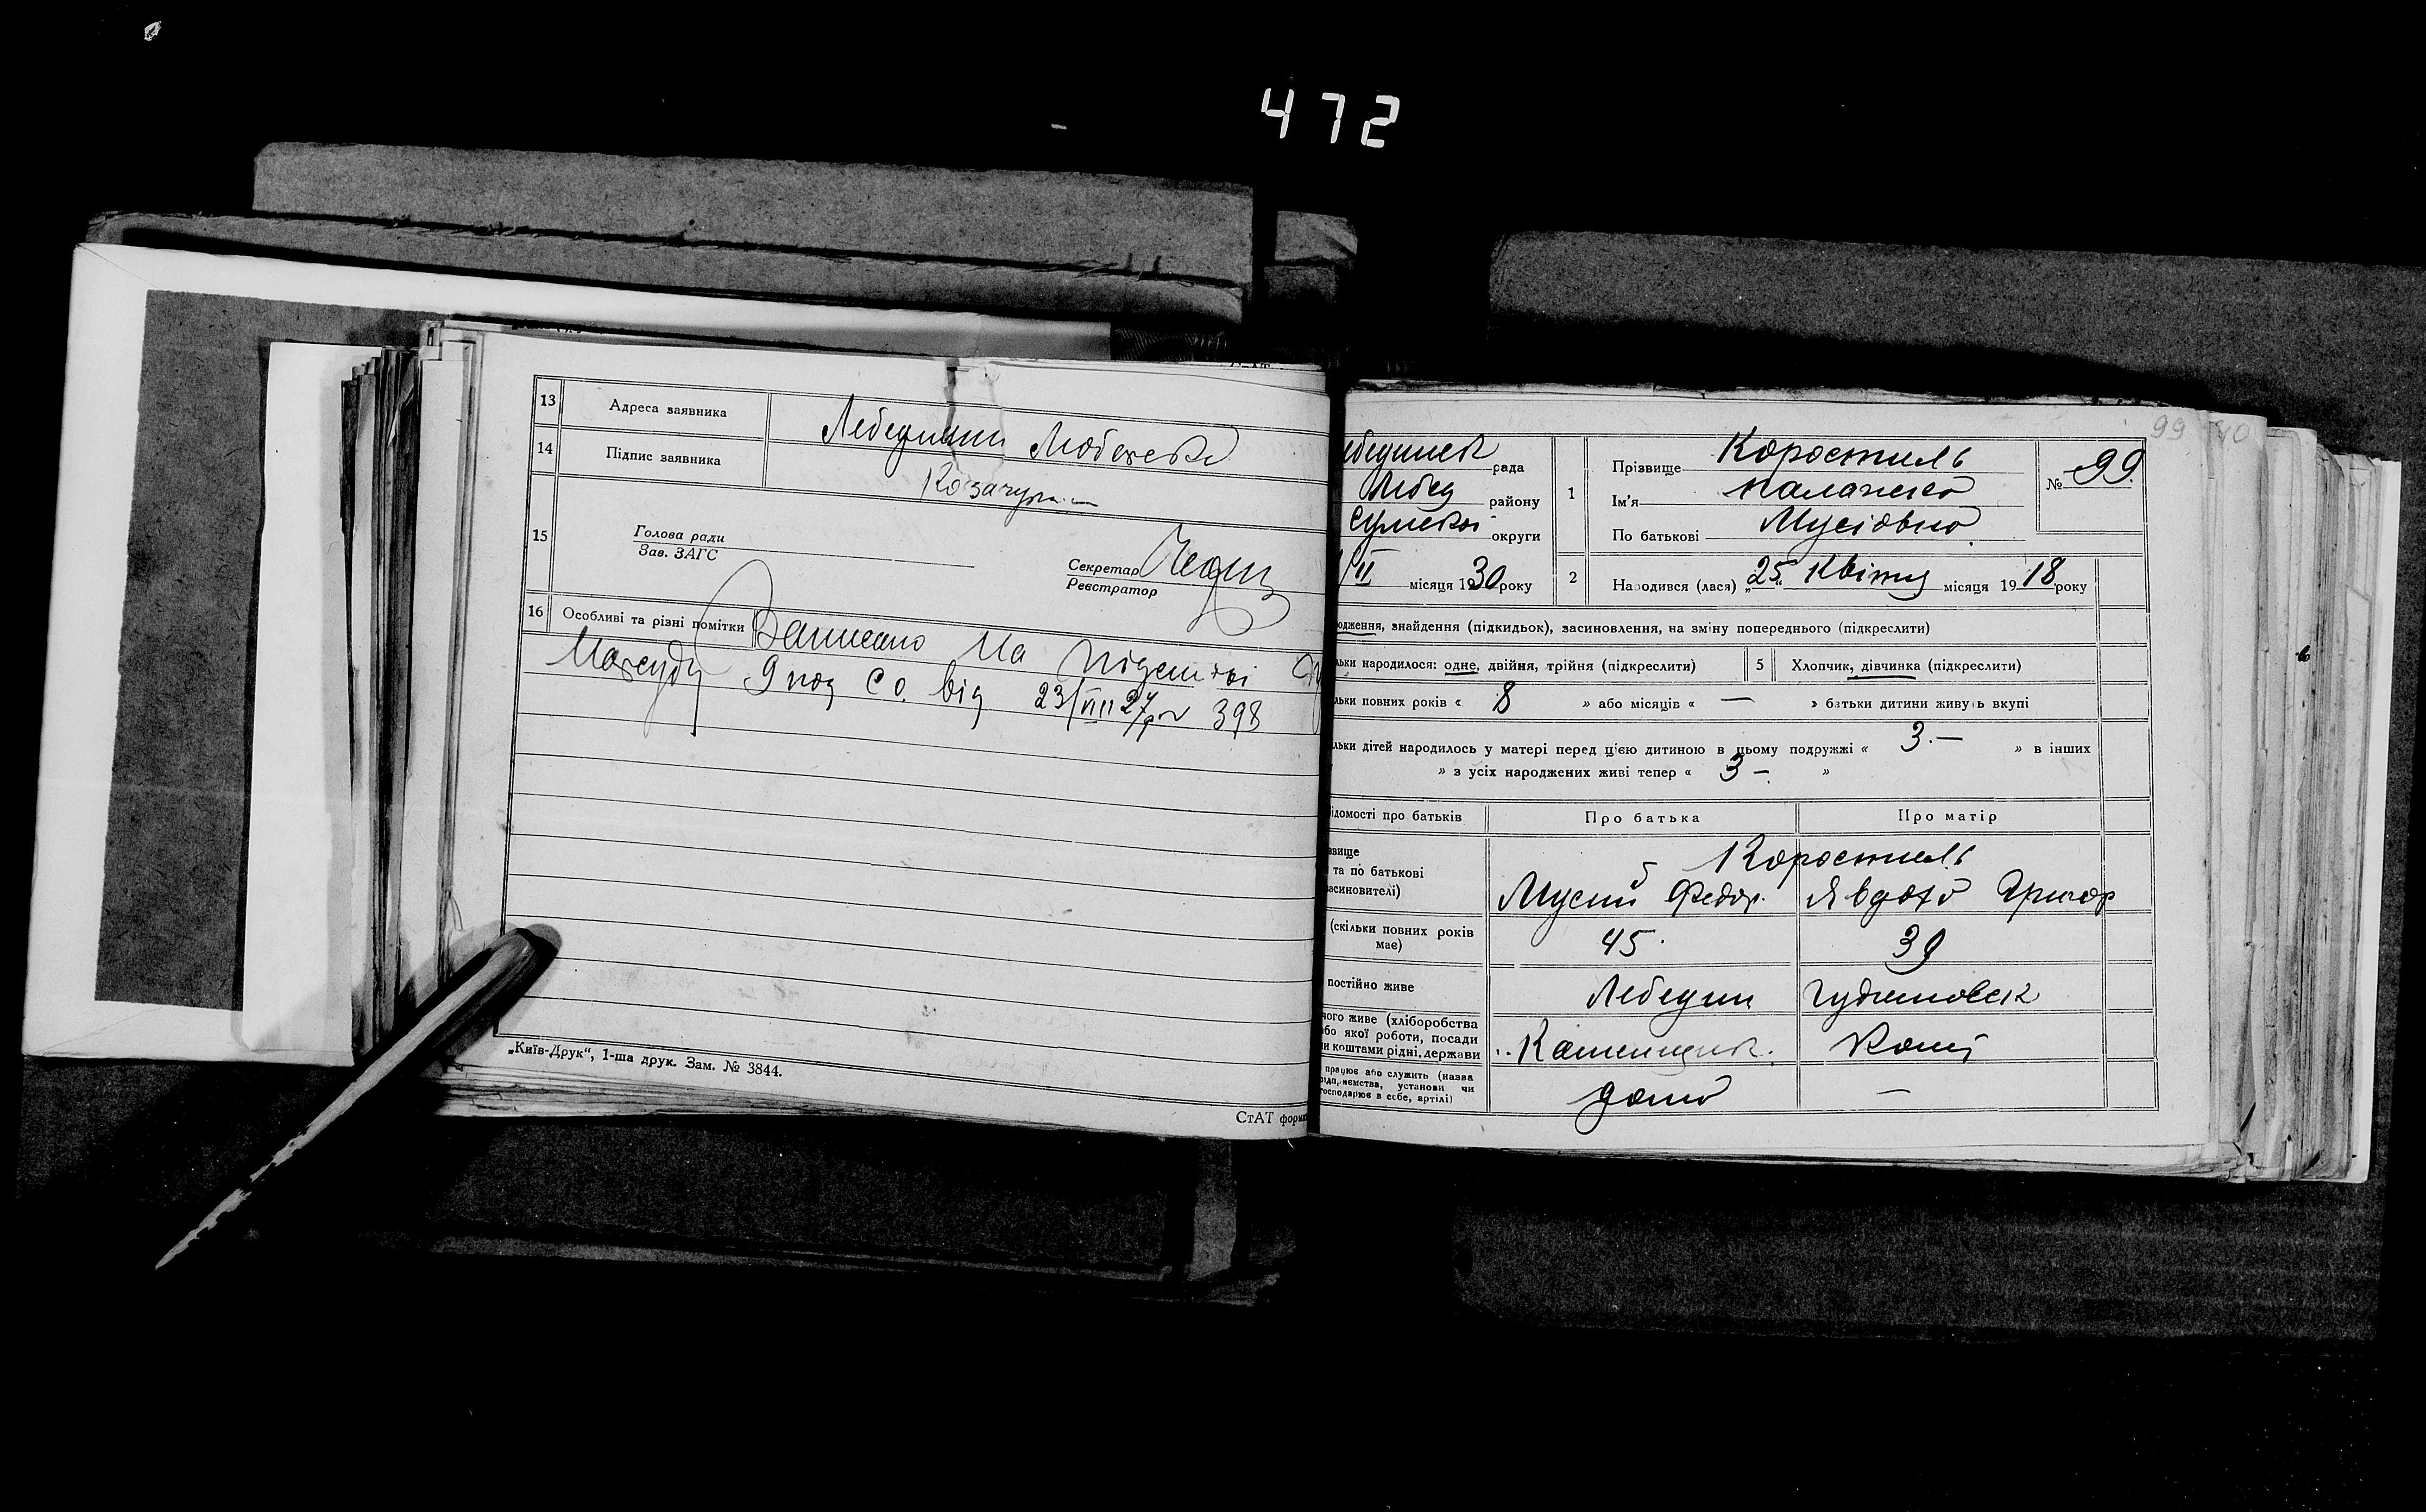 472
13 Адреса заявника Лебедин
14 Підпис заявника
15 Голова ради
Зав. ЗАГС
Секретар
Реєстратор
16 Особливі та різні помітки Записано на підставі
від 23/VIII 27 р № 398
„Київ-Друк“, 1-ша друк. Зам. № 3844.
СтАТ форма
99
рада
Лебед району
Сумської округи
II місяця 1930 року
1 Прізвище Коростиль
Ім'я Палажка
По батькові Мусіовна
№ 99
2 Народився (лася) „25“ Квітня місяця 1918 року
одження, знайдення (підкидьок), засиновлення, на зміну попереднього (підкреслити)
льки народилося: одне, двійня, трійня (підкреслити) 5 Хлопчик, дівчинка (підкреслити)
льки повних років « 8 » або місяців « — » батьки дитини живуть вкупі
льки дітей народилось у матері перед цією дитиною в цьому подружжі « 3.— » в інших
» з усіх народжених живі тепер « 3 —. »
ідомості про батьків Про батька Про матір
звище
та по батькові
асиновителі)
Коростиль
Мусій Федор. Явдоха Григор
(скільки повних років має) 45. 39
постійно живе Лебедин
чого живе (хліборобства
або якої роботи, посади
чи коштами рідні, держави
Каменщик.
працює або служить (назва
підприємства, установи чи
господарює в себе, артілі)
дома —